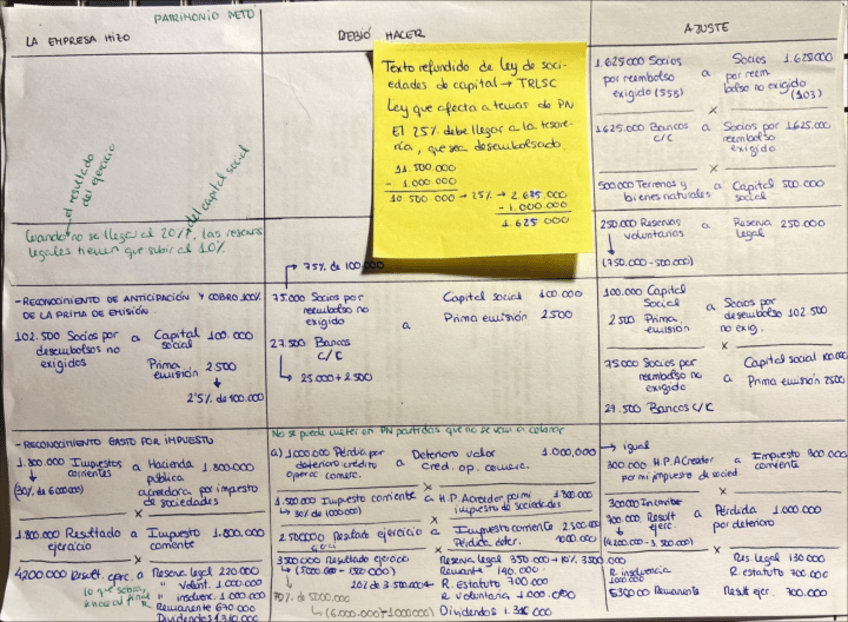 PATRIMONIO NETO
LA EMPRESA HIZO
DEBIÓ HACER
AJUSTE
el resultado
del ejercicio
del capital social
Cuando no se llega al 20%, las reservas
legales tienen que subir al 10%
Texto refundido de Ley de soci-
edades de capital → TRLSC
Ley que afecta a temas de PN
El 25% debe llegar a la tesore-
ría, que sea desembolsado.
11.500.000
- 1.000.000
10.500.000 → 25% → 2.625.000
- 1.000.000
1.625.000
1.625.000 Socios a Socios 1.625.000
por reembolso por reem-
exigido (558) bolso no exigido
(103)
x
1.625.000 Bancos a Socios por 1.625.000
c/c reembolso
exigido
x
500.000 Terrenos y a Capital 500.000
bienes naturales social
250.000 Reservas a Reserva 250.000
voluntarias legal
(750.000-500.000)
- RECONOCIMIENTO DE ANTICIPACIÓN Y COBRO 100%
DE LA PRIMA DE EMISIÓN.
102.500 Socios por a Capital 100.000
desembolsos no social
exigidos Prima 2500
emisión
2'5% de 100.000
75% de 100.000
75.000 Socios por Capital social 100.000
reembolso no a Prima emisión 2500
exigido
27.500 Bancos
C/C
25.000 + 2.500
100.000 Capital
Social a Socios por
2500 Prima desembolso 102.500
emisión no exig.
x
75000 Socios por Capital social 100.000
reembolso no a Prima emisión 2500
exigido
27.500 Bancos C/C
- RECONOCIMIENTO GASTO POR IMPUESTO
1.800.000 Impuestos a Hacienda 1.800.000
corrientes pública
(30% de 6000000) acreedora por impuesto
de sociedades
x
1.800.000 Resultado a Impuesto 1.800.000
ejercicio corriente
x
4200000 Result. ejerc. a Reserva legal 220000
" Volunt. 1.000.000
" insolvenc. 1.000.000
lo que sobra,
Remanente 670.000
Dividendos 1.310.000
No se puede meter en PN partidas que no se van a cobrar
a) 1000.000 Pérdida por Deterioro valor 1.000,000
deterioro crédito a Créd. op. comerc.
operac comerc.
x
1.500.000 Impuesto corriente a H.P. Acreedor por mi 1.500.000
30% de impuesto de sociedades
x
2500000 Resultado ejercicio a Impuesto corriente
Pérdida deter. 1000.000
x
3500000 Resultado ejercicio Reserva legal 350.000 → 10% 3500.000
(5000.000 - 1500.000) Remanente 140.000
20% de 3.500.000 ← R. Estatuto 700.000
70% de 5000.000 R. voluntaria 1000.000
(6.000.000-1000000) Dividendos
igual
300.000 H.P. Acreedor a Impuesto 300.000
por mi impuesto de socied. corriente
x
300000
700.000 Result a Pérdida 1.000.000
ejerc. por deterioro
(4200.000 - 3.500.000)
x
R. insolvencia Res. legal 130.000
1000.000 R. estatuto 700.000
530000 Remanente Result ejer. 700.000